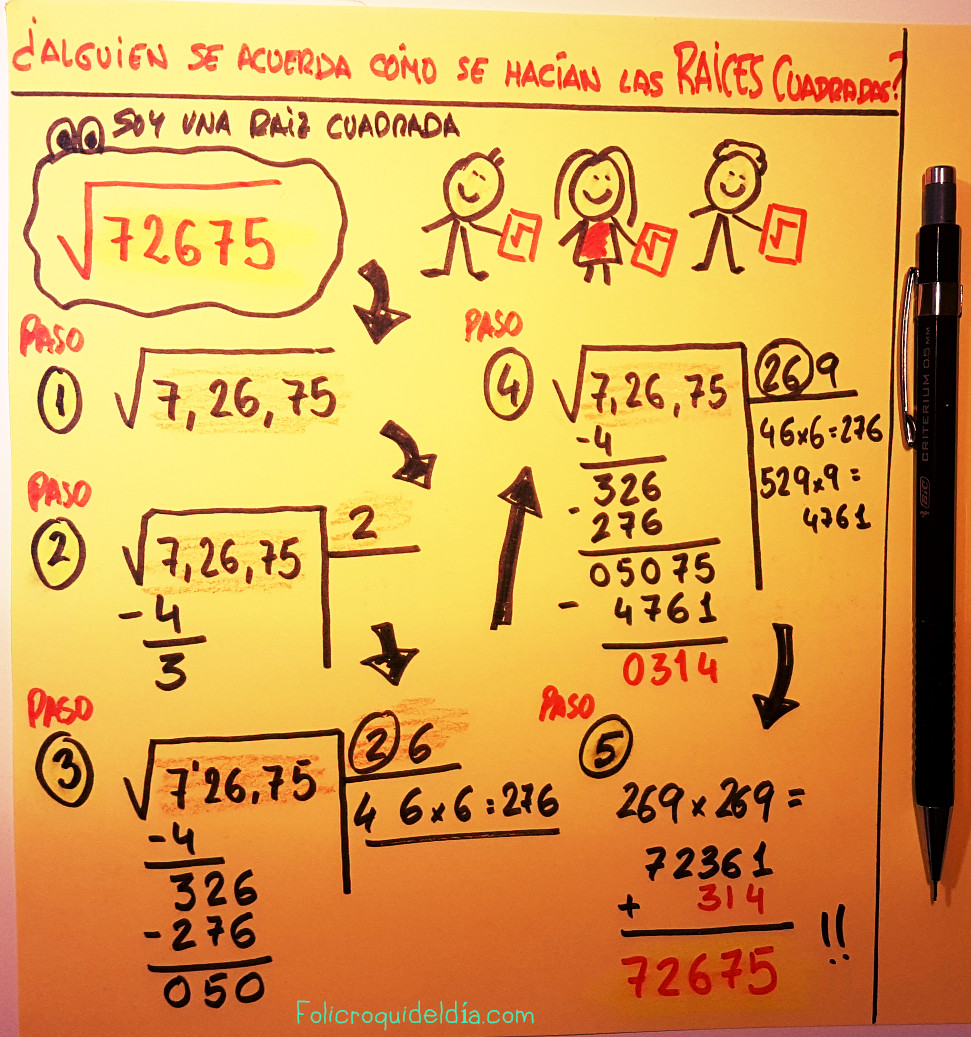 ¿ALGUIEN SE ACUERDA CÓMO SE HACÍAN LAS RAÍCES CUADRADAS?
SOY UNA RAIZ CUADRADA
√72675
PASO
1
√7,26,75
PASO
2
√7,26,75 2
-4
3
PASO
3
√7'26,75 2 6
4 6x6=276
-4
326
-276
050
PASO
4
√7,26,75 26 9
-4
46x6=276
326
529x9=
-276
4761
05075
- 4761
0314
PASO
5
269x269=
72361
+ 314
72675 !!
Folicroquideldía.com
BIC CRITERIUM 0.5 MM